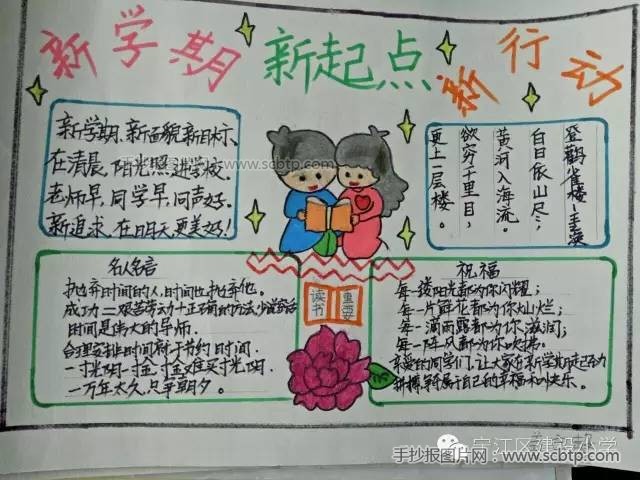 新学期 新起点 新行动
新学期、新面貌、新目标、
在清晨，阳光照进学校.
老师早，同学早，同声好.
新追求，在明天更美好！
登鹳雀楼，王之涣
白日依山尽；
黄河入海流。
欲穷千里目，
更上一层楼。
名人名言
抛弃时间的人，时间也抛弃他。
成功＝艰苦劳动＋正确的方法，少说空话
时间是伟大的导师.
合理安排时间等于节约时间.
一寸光阴一寸金，寸金难买寸光阴.
一万年太久，只争朝夕。
读书
重要
祝福
每一缕阳光都为你闪耀；
每一片鲜花都为你灿烂；
每一滴雨露都为你滋润；
每一阵风都为你吹拂.
亲爱的同学们，让大家在新学期起
拼搏，争属于自己的幸福和快乐。
宁江区建设小学
手抄报图片网：www.scbtp.com
www.scbtp.com